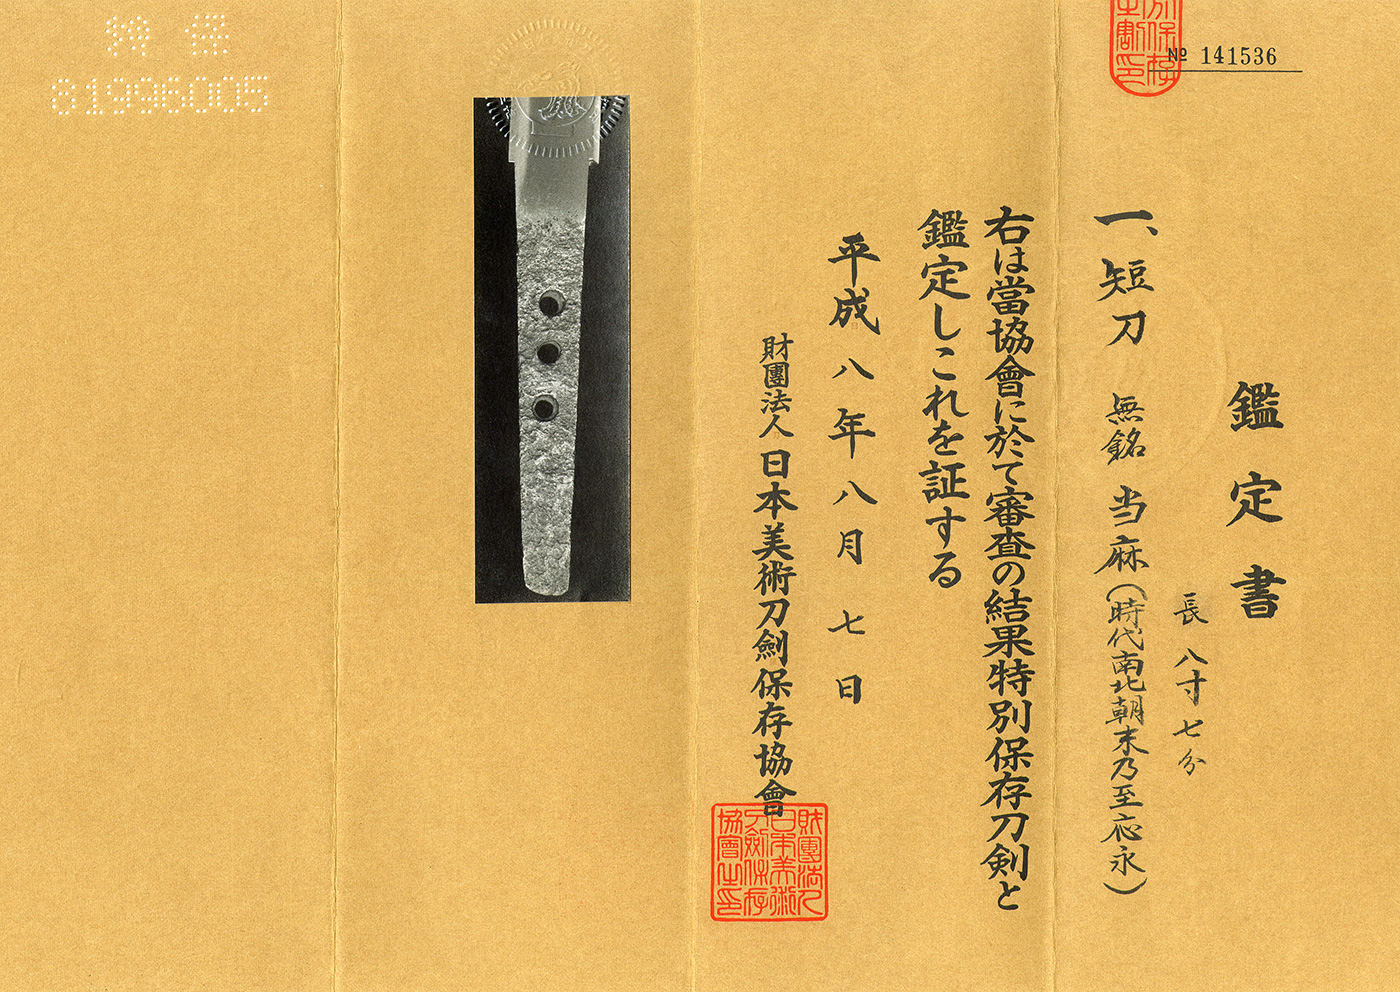 № 141536
鑑定書
長 八寸七分
一、短刀 無銘 当麻(時代南北朝末乃至応永)
右は當協會に於て審査の結果特別保存刀劍と
鑑定しこれを証する
平成八年八月七日
財團法人日本美術刀劍保存協會
財團法人
日本美術
刀劍保存
協會之印
特保
81996005